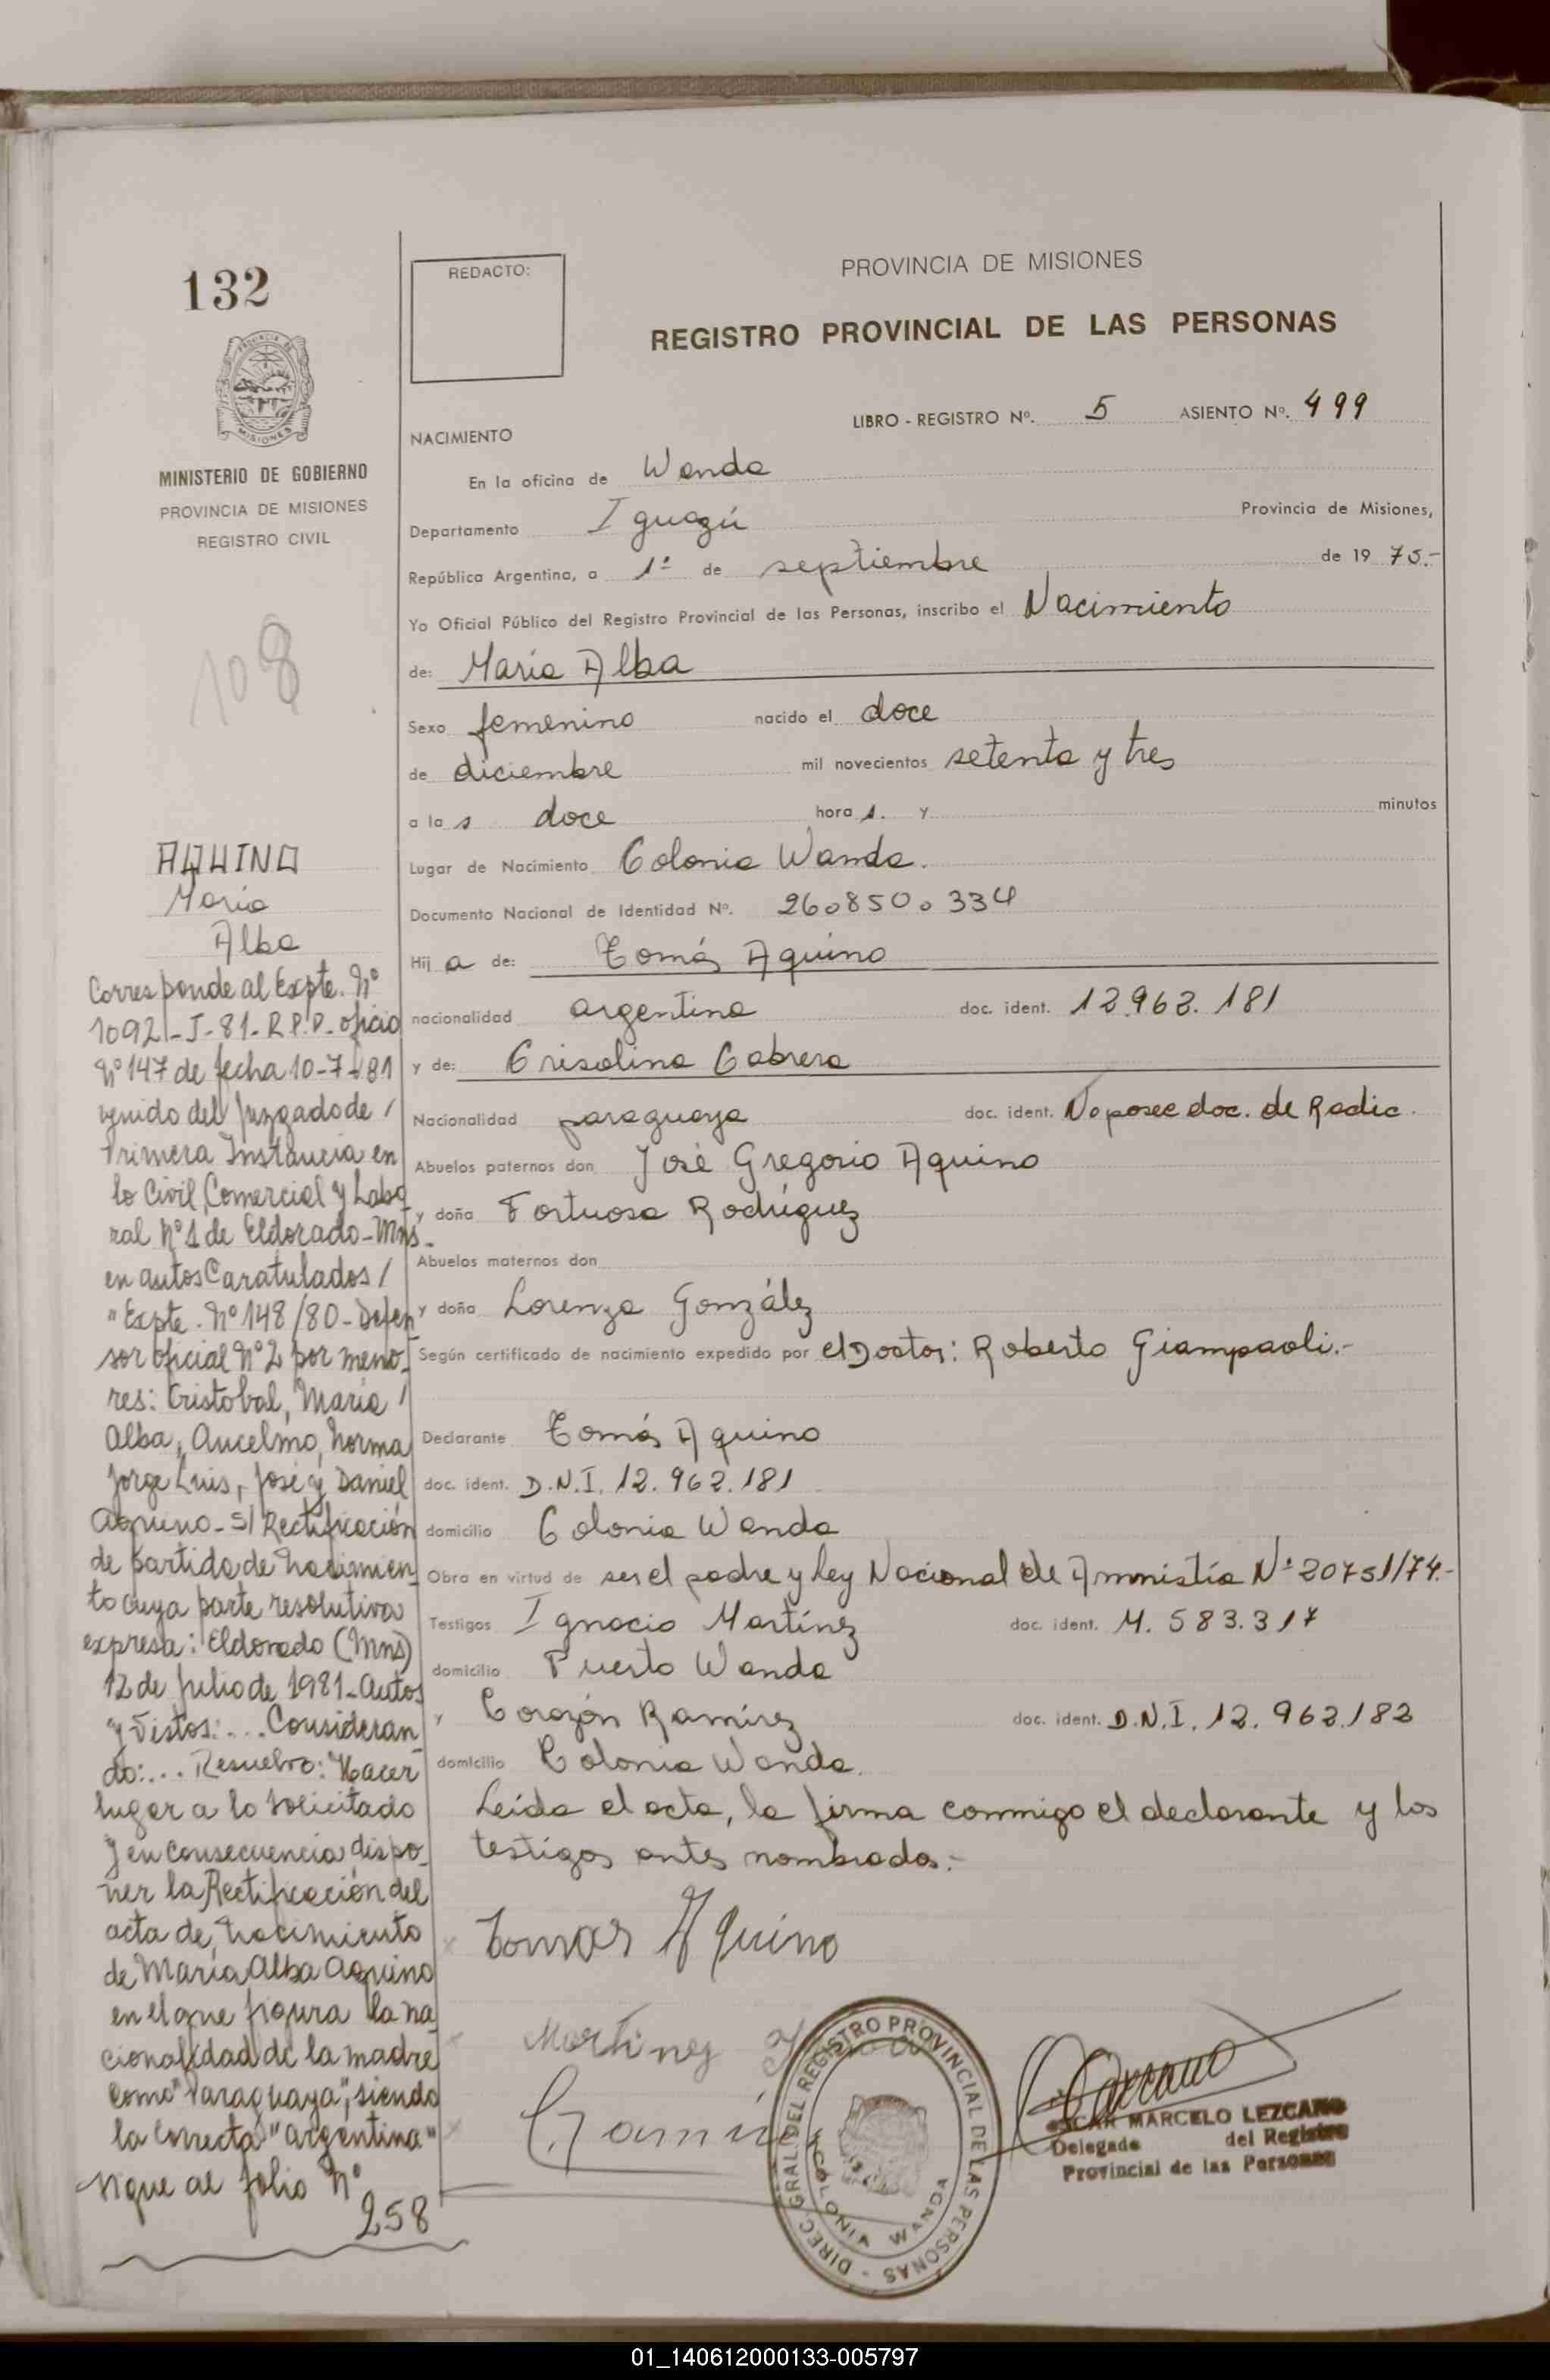 132
REDACTO:
PROVINCIA DE MISIONES
REGISTRO PROVINCIAL DE LAS PERSONAS
PROVINCIA DE MISIONES
MINISTERIO DE GOBIERNO
PROVINCIA DE MISIONES
REGISTRO CIVIL
108
LIBRO - REGISTRO Nº. 5 ASIENTO Nº. 499
NACIMIENTO
En la oficina de Wanda
Departamento Iguazú Provincia de Misiones,
República Argentina, a 1º de septiembre de 19 75.-
Yo Oficial Público del Registro Provincial de las Personas, inscribo el Nacimiento
de: María Alba
Sexo femenino nacido el doce
de diciembre mil novecientos setenta y tres
a la s doce hora s. y minutos
Lugar de Nacimiento Colonia Wanda.
Documento Nacional de Identidad Nº. 26.850.334
Hij a de: Tomás Aquino
nacionalidad argentina doc. ident. 12.962.181
y de: Crisolina Cabrera
Nacionalidad paraguaya doc. ident. No posee doc. de Radic.
Abuelos paternos don José Gregorio Aquino
y doña Fortuosa Rodríguez
Abuelos maternos don
y doña Lorenza González
Según certificado de nacimiento expedido por el Doctor: Roberto Giampaoli.-
Declarante Tomás Aquino
doc. ident. D.N.I. 12.962.181
domicilio Colonia Wanda
Obra en virtud de ser el padre y ley Nacional de Amnistía Nº 20751/74.-
Testigos Ignacio Martínez doc. ident. M. 583.317
domicilio Puerto Wanda
y Corazón Ramírez doc. ident. D.N.I. 12.962.182
domicilio Colonia Wanda.
Leída el acta, la firma conmigo el declarante y los
testigos antes nombrados.-
Tomas Aquino
Martinez
DIREC. GRAL. DEL REGISTRO PROVINCIAL DE LAS PERSONAS -
COLONIA WANDA
OSCAR MARCELO LEZCANO
Delegado del Registro
Provincial de las Personas
AQUINO
María
Alba
Corresponde al Expte. Nº
1092-J-81-R.P.P. oficio
Nº 147 de fecha 10-7-81
venido del Juzgado de /
Primera Instancia en
lo Civil, Comercial y Labo
ral Nº 1 de Eldorado-Mns-
en autos Caratulados /
"Expte. Nº 148/80-Defen
sor oficial Nº 2 por meno-
res: Cristobal, María /
Alba, Ancelmo, Norma
Jorge Luis, José y Daniel
Aquino- S/ Rectificación
de partida de nacimien
to cuya parte resolutiva
expresa: Eldorado (Mns)
12 de Julio de 1981-Autos
y Vistos:... Consideran
do:... Resuelvo: Hacer
lugar a lo solicitado
y en consecuencia dispo-
ner la Rectificación del
acta de nacimiento
de María Alba Aquino
en el que figura la na
cionalidad de la madre
como "Paraguaya", siendo
la correcta "argentina"
sigue al folio Nº
258
01_140612000133-005797